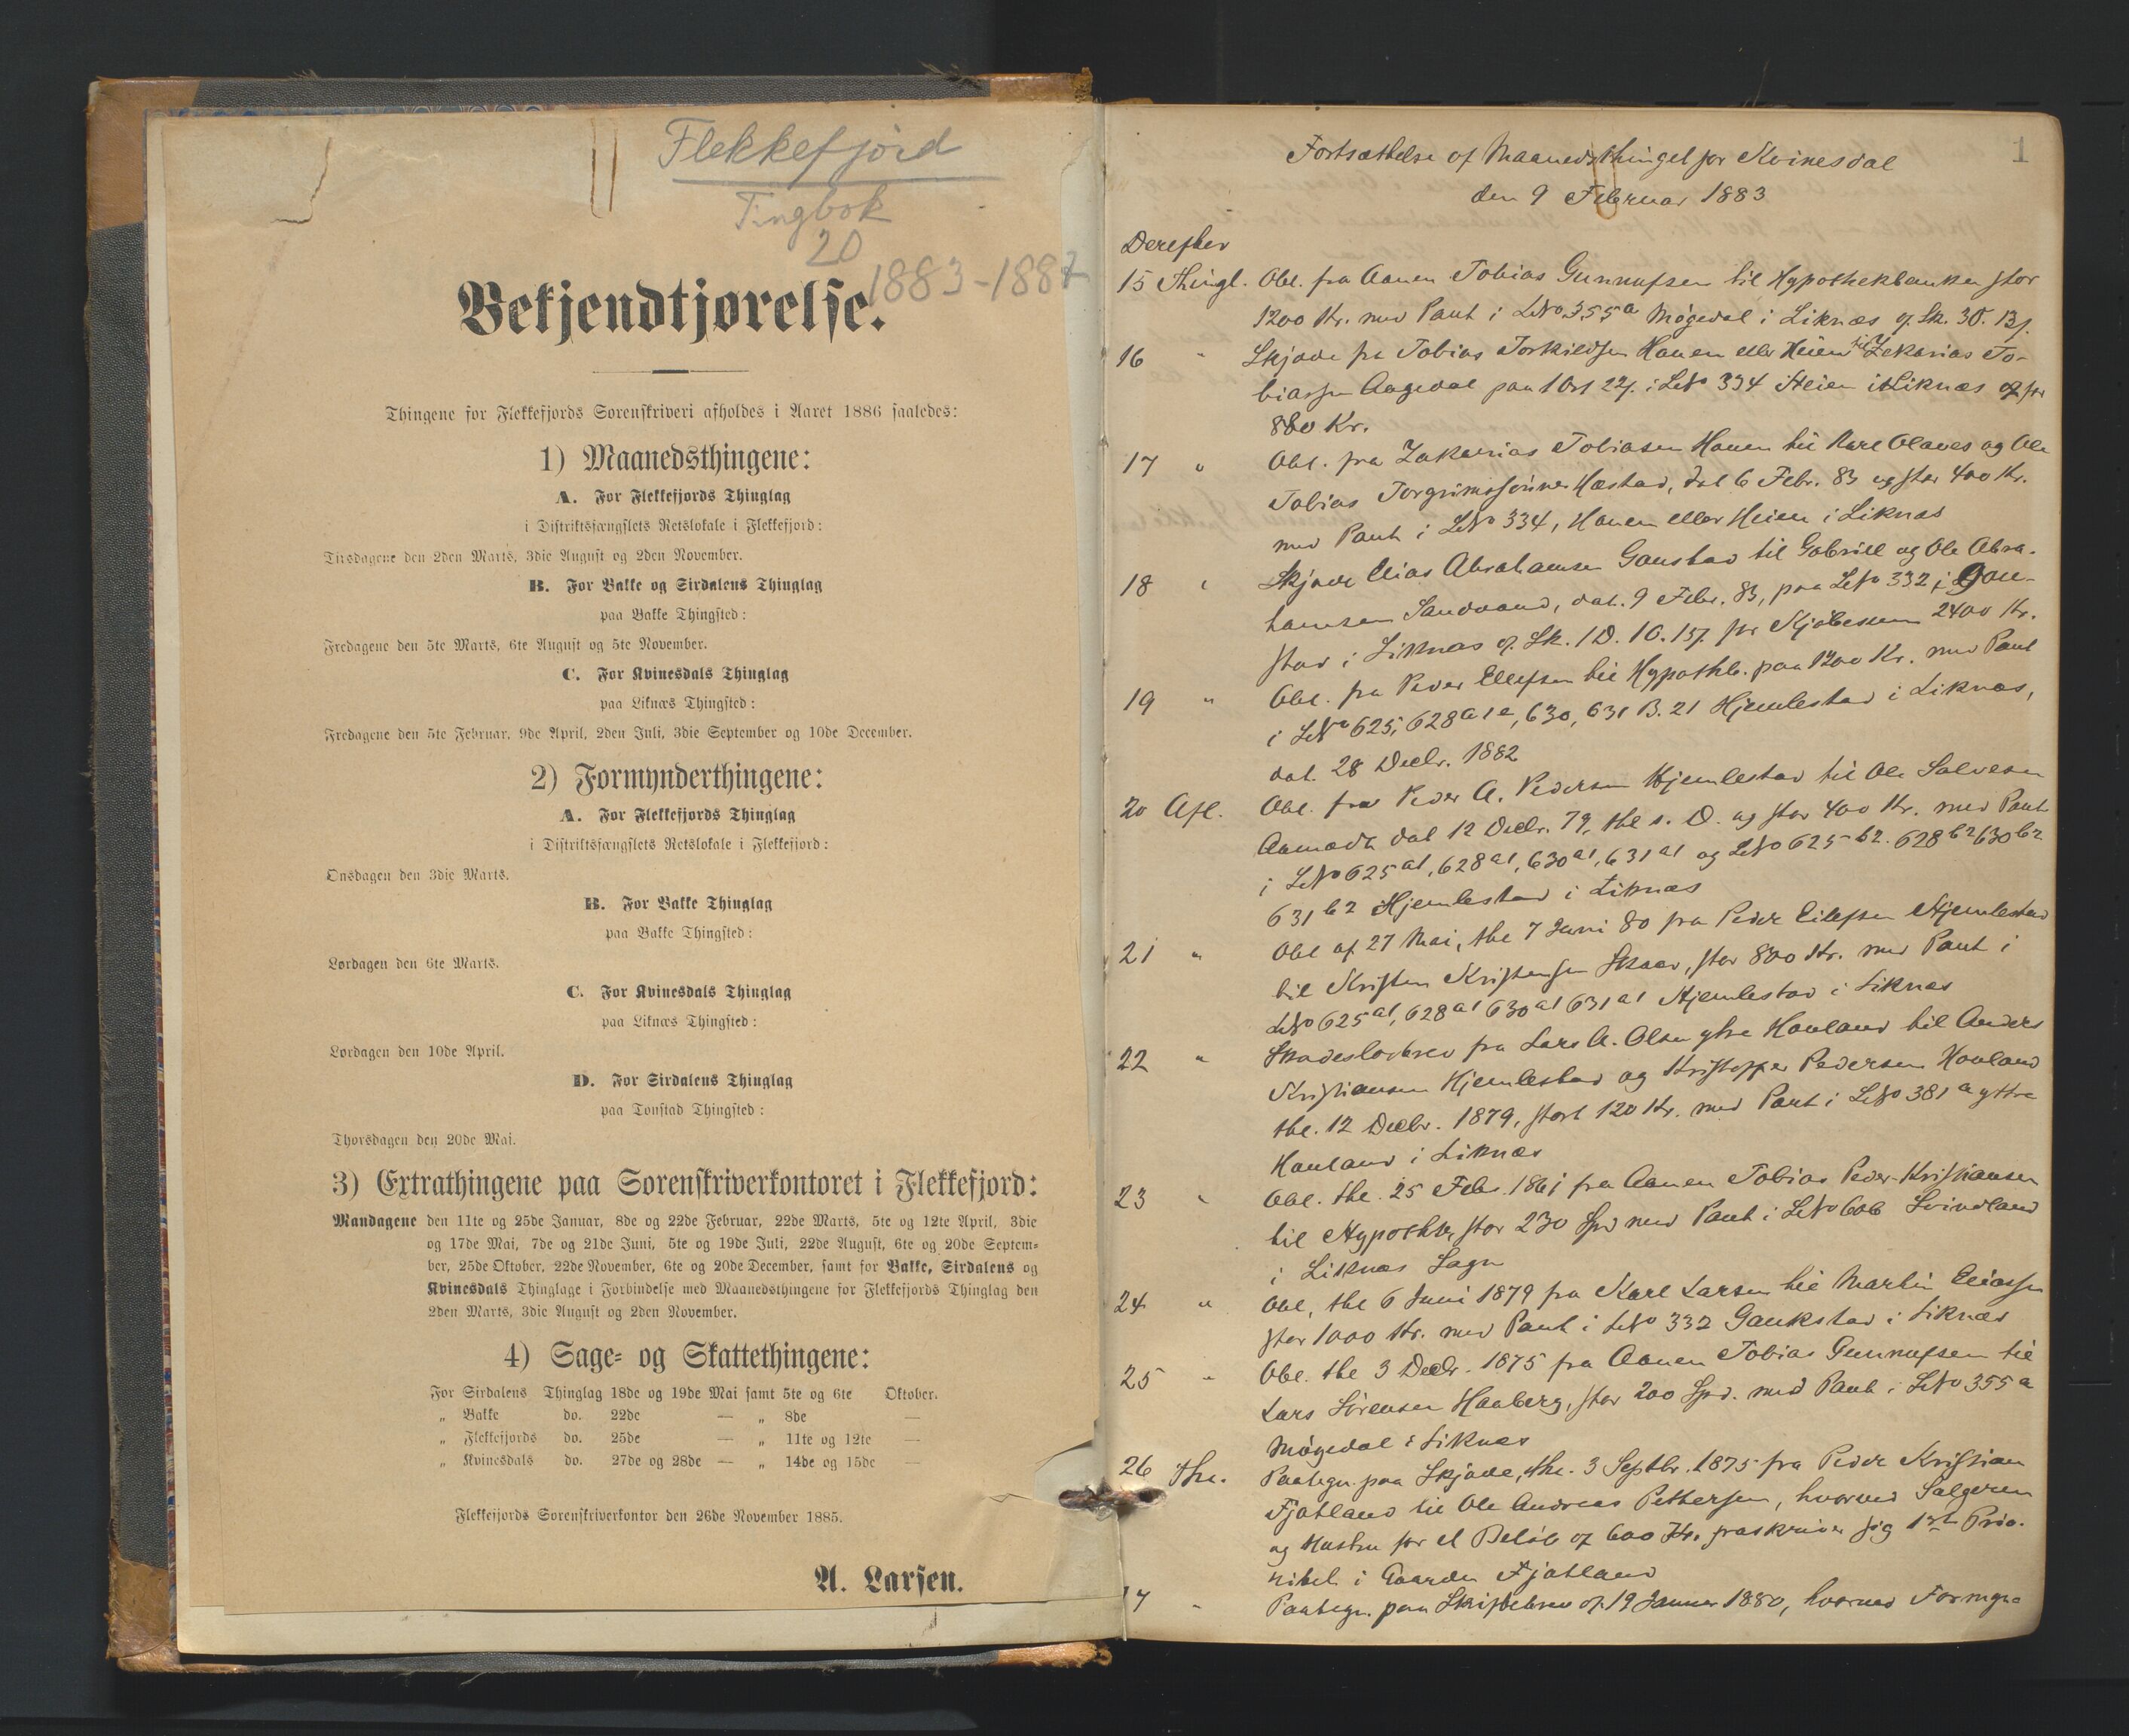 Flekkefjord
Tingbok
20
1883-1887
Bekjendtjørelse.
Thingene for Flekkefjords Sorenskriveri afholdes i Aaret 1886 saaledes:
1) Maanedsthingene:
A. For Flekkefjords Thinglag
i Distriktsfængslets Retslokale i Flekkefjord:
Tirsdagene den 2den Marts, 3die August og 2den November.
B. For Bakke og Sirdalens Thinglag
paa Bakke Thingsted:
Fredagene den 5te Marts, 6te August og 5te November.
C. For Kvinesdals Thinglag
paa Liknæs Thingsted:
Fredagene den 5te Februar, 9de April, 2den Juli, 3die September og 10de December.
2) Formynderthingene:
A. For Flekkefjords Thinglag
i Distriktsfængslets Retslokale i Flekkefjord:
Onsdagen den 3die Marts.
B. For Bakke Thinglag
paa Bakke Thingsted:
Lørdagen den 6te Marts.
C. For Kvinesdals Thinglag
paa Liknæs Thingsted:
Lørdagen den 10de April.
D. For Sirdalens Thinglag
paa Tonstad Thingsted:
Thorsdagen den 20de Mai.
3) Extrathingene paa Sorenskriverkontoret i Flekkefjord:
Mandagene den 11te og 25de Januar, 8de og 22de Februar, 22de Marts, 5te og 12te April, 3die
og 17de Mai, 7de og 21de Juni, 5te og 19de Juli, 22de August, 6te og 20de Septem-
ber, 25de Oktober, 22de November, 6te og 20de December, samt for Bakke, Sirdalens og
Kvinesdals Thinglage i Forbindelse med Maanedsthingene for Flekkefjords Thinglag den
2den Marts, 3die August og 2den November.
4) Sage- og Skattethingene:
For Sirdalens Thinglag 18de og 19de Mai samt 5te og 6te Oktober.
„ Bakke do. 22de — „ 8de —
„ Flekkefjords do. 25de — „ 11te og 12te —
„ Kvinesdals do. 27de og 28de — „ 14de og 15de —
Flekkefjords Sorenskriverkontor den 26de November 1885.
A. Larsen.
1
Fortsættelse af Maanedsthinget for Kvinesdal
den 9 Februar 1883
Derefter
15 Thingl. Obl. fra Aanen Tobias Gunnufsen til Hypothekbanken stor
1200 Kr. med Pant i LNo 355a Mögedal i Liknæs af Sk. 3 O. 13 ſ.
16 " Skjøde fra Tobias Torkildsen Hauen eller Heien til Zekarias To-
biassen Aagedal paa 1 Ort 22 ſ. i LNo 334 Heien i Liknæs for
880 Kr.
17 " Obl. fra Zakarias Tobiasen Hauen til Karl Olaves og Ole
Tobias Torgrimssønner Mæstad, dat 6 Febr. 83 og stor 400 Kr.
med Pant i LNo 334, Hauen eller Heien i Liknæs
18 " Skjøde Elias Abrahamsen Gaustad til Gabriel og Ole Abra-
hamsen Sandvand, dat. 9 Febr. 83, paa LNo 332 i Gau-
stad i Liknæs af Sk. 1 D. 1 O. 15 ſ. for Kjøbesum 2400 Kr.
19 " Obl. fra Peder Ellefsen til Hypothb. paa 1200 Kr. med Pant
i LNo 625, 628 a 1 e, 630, 631 B. 21 Hjemlestad i Liknæs,
dat. 28 Decbr. 1882
20 Afl. Obl. fra Peder A. Pedersen Hjemlestad til Ole Salvesen
Aamodt dat 12 Decbr. 79, thl s. D. og stor 400 Kr. med Pant
i LNo 625 a1, 628 a1, 630 a1, 631 a1 og LNo 625 b2. 628 b2 630 b2
631 b2 Hjemlestad i Liknæs
21 " Obl af 27 Mai, thl 7 Juni 80 fra Peder Eilefsen Hjemlestad
til Kristen Kristensen Skaar, stor 800 Kr. med Pant i
LNo 625 a1, 628 a1 630 a1 631 a1 Hjemlestad i Liknæs
22 " Skadesløsbrev fra Lars A. Olsen ytre Hauland til Anders
Kristiansen Hjemlestad og Kristoffer Pedersen Hauland
thl. 12 Decbr. 1879, stort 120 Kr. med Pant i LNo 381 a yttre
Hauland i Liknæs
23 " Obl. thl. 25 Febr. 1861 fra Aanen Tobias Peder Kristiansen
til Hypothb, stor 230 Spd med Pant i LNo 606 Svindland
i Liknæs Sogn
24 " Obl, thl 6 Juni 1879 fra Karl Larsen til Martin Eliassen
stor 1000 Kr. med Pant i LNo 332 Gaukstad i Liknæs
25 " Obl. thl 3 Decbr. 1875 fra Aanen Tobias Gunnufsen til
Lars Sörensen Haaberg, stor 200 Spd. med Pant i LNo 355 a
Mögedal i Liknæs
26 Thl. Paategn. paa Skjøde, thl. 3 Septbr. 1875 fra Peder Kristian
Fjotland til Ole Andreas Pettersen, hvorved Sælgeren
og Hustru for et Beløb af 600 Kr. fraskriver sig 1ste Prio-
ritet i Gaarden Fjotland
17 " Paategn. paa Skiftebrev af 19 Januar 1880, hvorved Formyn-